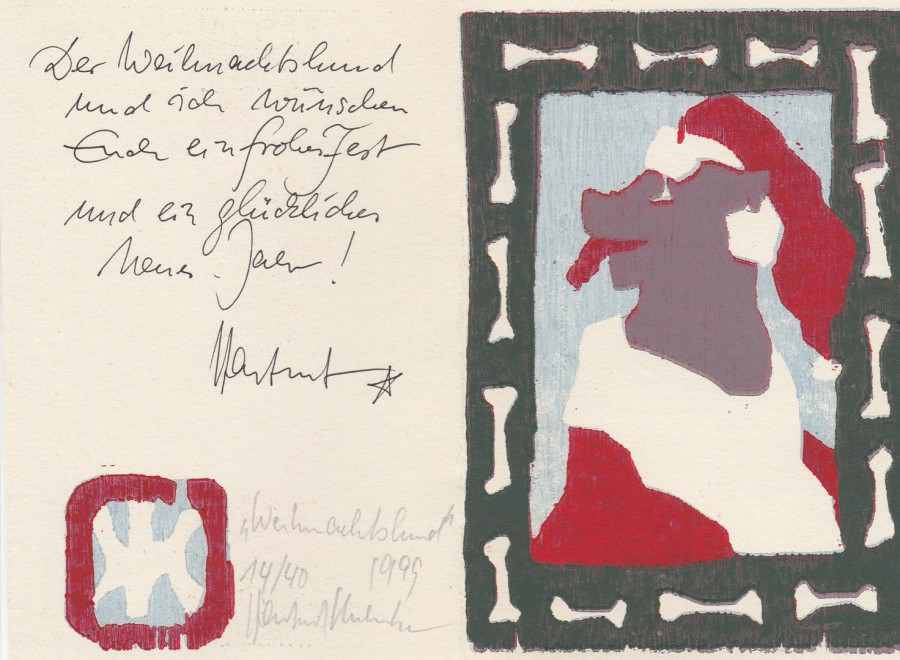 Der Weihnachtshund
und ich wünschen
Euch ein frohes Fest
und ein glückliches
Neues Jahr!
Hartmut
„Weihnachtshund“
14/40 1995
Hartmut